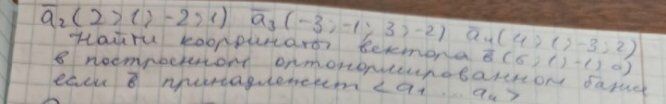 ā₂(2;1;-2;1) ā₃(-3;-1;3;-2) ā₄(4;1;-3;2)
Найти координаты вектора b̄(6;1;-1;0)
в построенном ортонормированном базисе
если b̄ принадлежит <a₁ ... a₄>